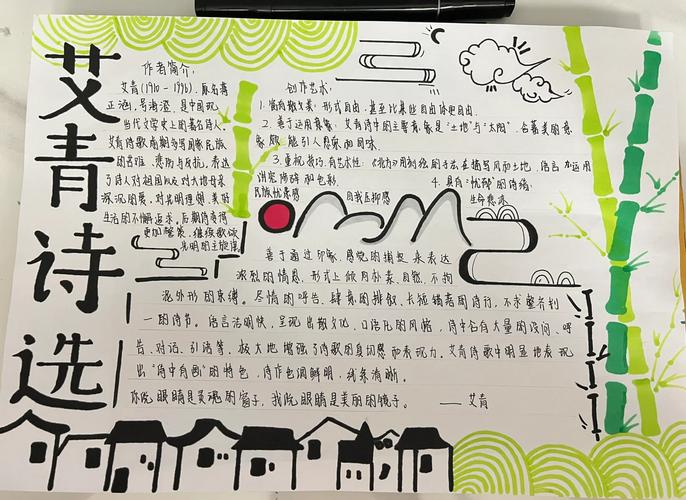 艾青诗选
作者简介:
艾青(1910-1996),原名蒋
正涵,号海澄,是中国现
当代文学史上的著名诗人。
艾青诗歌前期多写国家民族
的苦难、悲伤与反抗,表达
了诗人对祖国以及对大地母亲
深沉的爱,对光明理想、美好
生活的不懈追求,后期诗
更加 继续歌颂
光明的主旋律
创作艺术:
1. 富有散文美,形式自由,甚至比某些自由体更自由
2. 善于运用意象:艾青诗中的主要意象是“土地”与“太阳”,含蓄美的意
象 能引人想象和回味
3. 重视技巧,有艺术性:《北方》用 的手法在描写风和土地,语言
讲究 和色彩
4. 具有“忧郁”的诗绪:
民族忧患感
自我压抑感
生命悲凉
善于通过印象、感觉的捕捉来表达
浓烈的情思,形式上倾向朴素、自然,不拘
泥外形的束缚。尽情的呼告、肆意的排叙、长短错差的诗行,不求整齐划
一的诗节。语言活明快,呈现出散文化、口语化的风格,诗中含有大量的设问、呼
告、对话、引语等,极大地增强了诗歌的身切感和表现力。艾青诗歌中明显地表现
出“诗中有画”的特色,诗作色调鲜明,线条清晰。
你说眼睛是灵魂的窗子,我说眼睛是美丽的镜子。 ——艾青